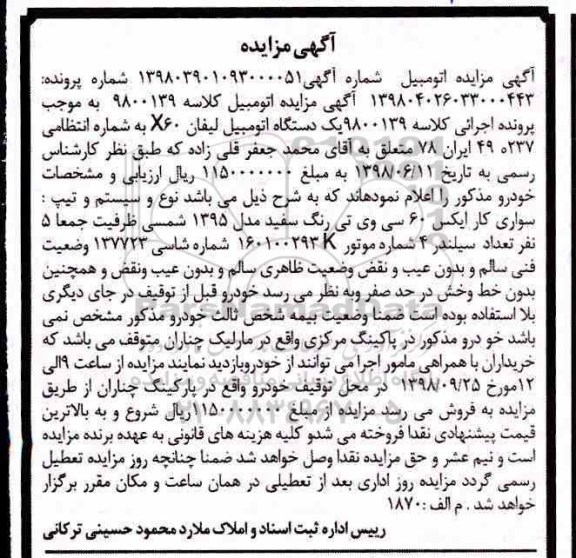 آگهی مزایده
آگهی مزایده اتومبیل شماره آگهی۱۳۹۸۰۳۹۰۱۰۹۳۰۰۰۰۵۱ شماره پرونده:
۱۳۹۸۰۴۰۲۶۰۳۳۰۰۰۴۴۳ آگهی مزایده اتومبیل کلاسه ۹۸۰۰۱۳۹ به موجب
پرونده اجرائی کلاسه ۹۸۰۰۱۳۹یک دستگاه اتومبیل لیفان X۶۰ به شماره انتظامی
۲۳۷ه ۴۹ ایران ۷۸ متعلق به آقای محمد جعفر قلی زاده که طبق نظر کارشناس
رسمی به تاریخ ۱۳۹۸/۰۶/۱۱ به مبلغ ۱۱۵۰۰۰۰۰۰۰ ریال ارزیابی و مشخصات
خودرو مذکور را اعلام نمودهاند که به شرح ذیل می باشد نوع و سیستم و تیپ :
سواری کار ایکس ۶۰ سی وی تی رنگ سفید مدل ۱۳۹۵ شمسی ظرفیت جمعا ۵
نفر تعداد سیلندر ۴ شماره موتور K ۱۶۰۱۰۰۲۹۳ شماره شاسی ۱۳۷۷۲۳ وضعیت
فنی سالم و بدون عیب و نقض وضعیت ظاهری سالم و بدون عیب ونقض و همچنین
بدون خط وخش در حد صفر وبه نظر می رسد خودرو قبل از توقیف در جای دیگری
بلا استفاده بوده است ضمنا وضعیت بیمه شخص ثالث خودرو مذکور مشخص نمی
باشد خو درو مذکور در پاکینگ مرکزی واقع در مارلیک چناران متوقف می باشد که
خریداران با همراهی مامور اجرا می توانند از خودروبازدید نمایند مزایده از ساعت ۹الی
۱۲مورخ ۱۳۹۸/۰۹/۲۵ در محل توقیف خودرو واقع در پارکینگ چناران از طریق
مزایده به فروش می رسد مزایده از مبلغ ۱۱۵۰۰۰۰۰۰۰ریال شروع و به بالاترین
قیمت پیشنهادی نقدا فروخته می شدو کلیه هزینه های قانونی به عهده برنده مزایده
است و نیم عشر و حق مزایده نقدا وصل خواهد شد ضمنا چنانچه روز مزایده تعطیل
رسمی گردد مزایده روز اداری بعد از تعطیلی در همان ساعت و مکان مقرر برگزار
خواهد شد . م الف :۱۸۷۰
رییس اداره ثبت اسناد و املاک ملارد محمود حسینی ترکانی